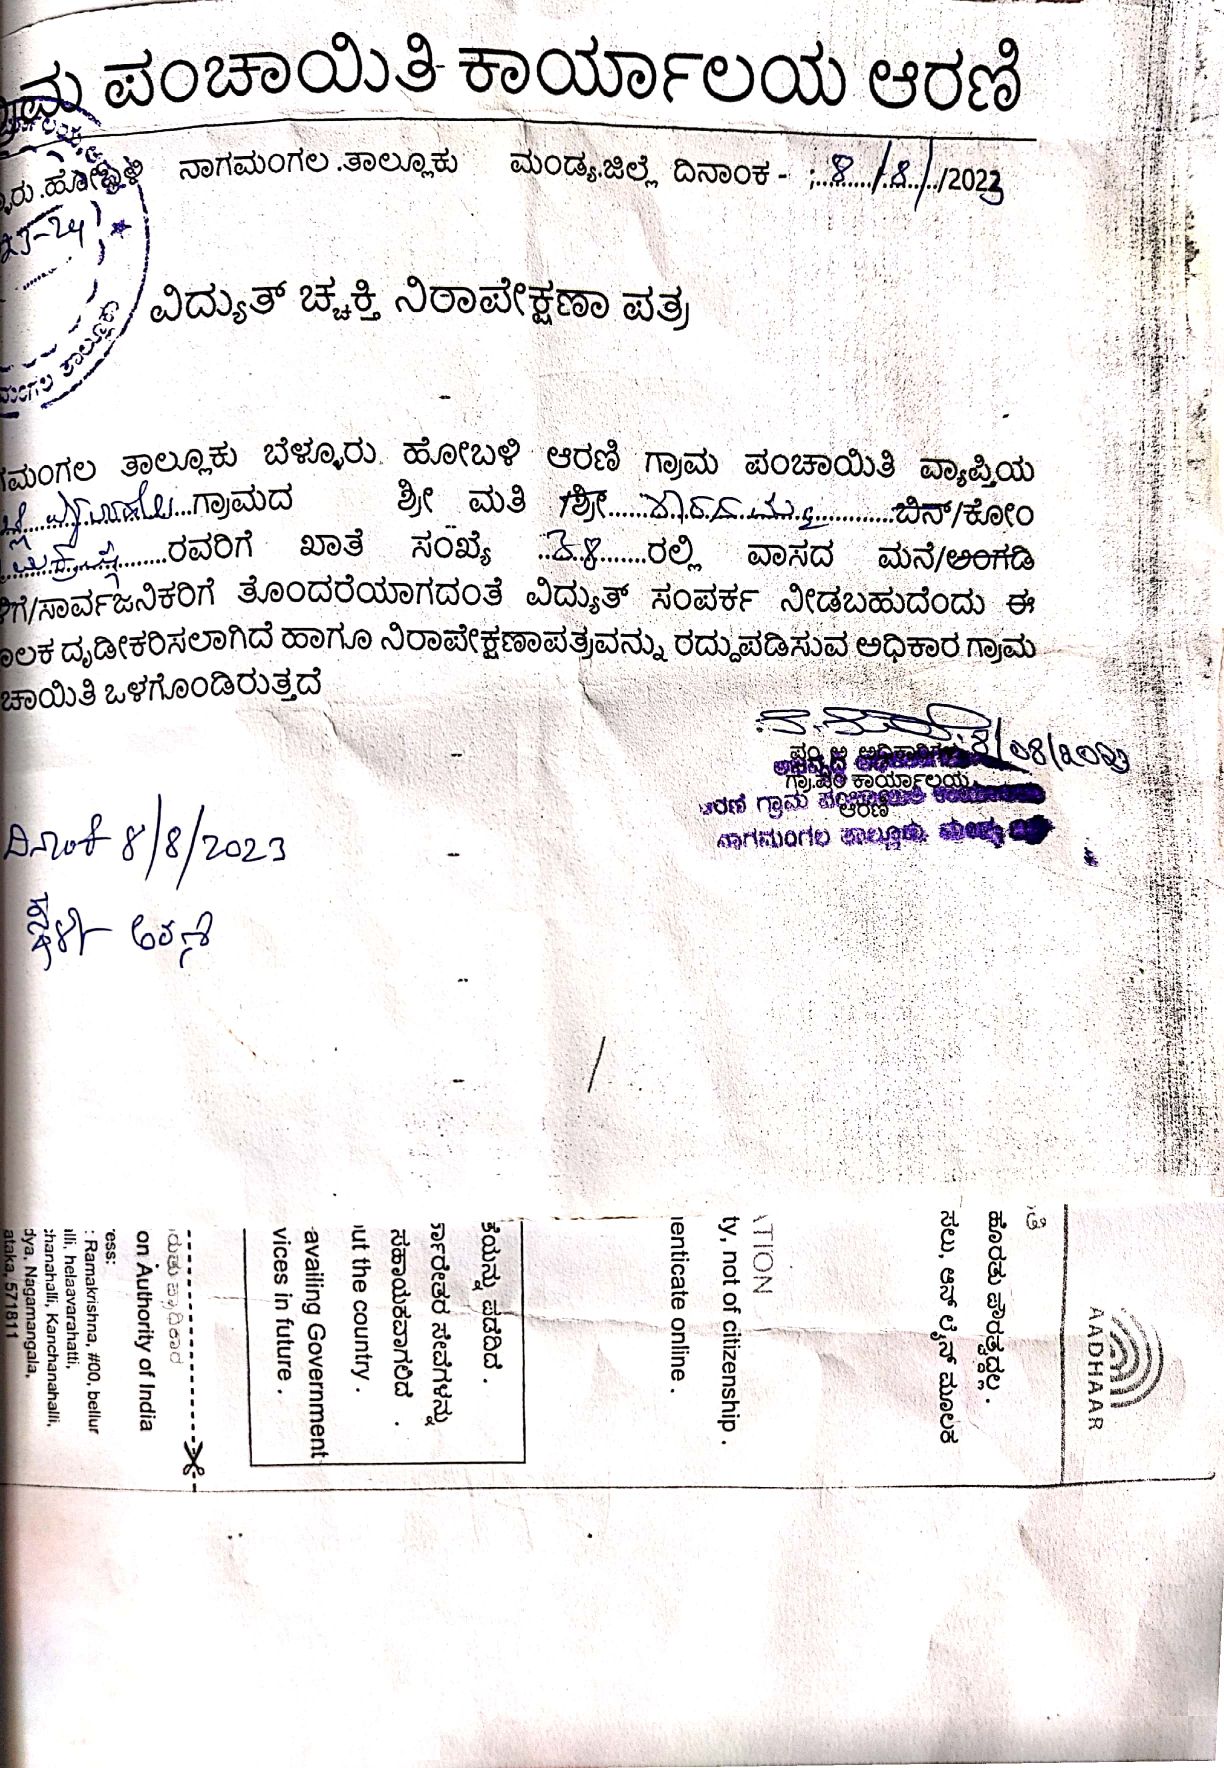 ಪಂಚಾಯಿತಿ ಕಾರ್ಯಾಲಯ ಆರಣಿ
ಹೋಬಳಿ ನಾಗಮಂಗಲ.ತಾಲ್ಲೂಕು ಮಂಡ್ಯ.ಜಿಲ್ಲೆ ದಿನಾಂಕ - :..8..../.8../../2023
23-24
ವಿದ್ಯುತ್ ಚ್ಚಕ್ತಿ ನಿರಾಪೇಕ್ಷಣಾ ಪತ್ರ
ಗಮಂಗಲ ತಾಲ್ಲೂಕು ಬೆಳ್ಳೂರು ಹೋಬಳಿ ಆರಣಿ ಗ್ರಾಮ ಪಂಚಾಯಿತಿ ವ್ಯಾಪ್ತಿಯ
ಗ್ರಾಮದ ಶ್ರೀ ಮತಿ /ಶ್ರೀ ಬಿನ್/ಕೋಂ
ರವರಿಗೆ ಖಾತೆ ಸಂಖ್ಯೆ ರಲ್ಲಿ ವಾಸದ ಮನೆ/ಅಂಗಡಿ
ಗೆ/ಸಾರ್ವಜನಿಕರಿಗೆ ತೊಂದರೆಯಾಗದಂತೆ ವಿದ್ಯುತ್ ಸಂಪರ್ಕ ನೀಡಬಹುದೆಂದು ಈ
ೂಲಕ ದೃಡೀಕರಿಸಲಾಗಿದೆ ಹಾಗೂ ನಿರಾಪೇಕ್ಷಣಾಪತ್ರವನ್ನು ರದ್ದುಪಡಿಸುವ ಅಧಿಕಾರ ಗ್ರಾಮ
ಚಾಯಿತಿ ಒಳಗೊಂಡಿರುತ್ತದೆ
8/08/2023
ಪಂ.ಅ ಅಧಿಕಾರಿಗಳು
ಗ್ರಾ.ಪಂ ಕಾರ್ಯಾಲಯ
ಆರಣಿ
ಆರಣಿ ಗ್ರಾಮ
ನಾಗಮಂಗಲ ತಾಲ್ಲೂಕು. ಮಂಡ್ಯ
ದಿನಾಂಕ 8/8/2023
ಸ್ಥಳ ಆರಣಿ
AADHAAR
ಹೊರತು ಪೌರತ್ವದ್ದಲ್ಲ .
ಸಲು, ಆನ್ ಲೈನ್ ಮೂಲಕ
ATION
ty, not of citizenship .
enticate online .
ಕೆಯನ್ನು ಪಡೆದಿದೆ .
ರ್ಕಾರೇತರ ಸೇವೆಗಳನ್ನು
ಸಹಾಯಕವಾಗಲಿದೆ .
ut the country .
availing Government
vices in future .
ರುತು ಪ್ರಾಧಿಕಾರ
on Authority of India
ess:
: Ramakrishna, #00, bellur
illi, helaavarahatti,
chanahalli, Kanchanahalli,
dya, Nagamangala,
ataka, 571811